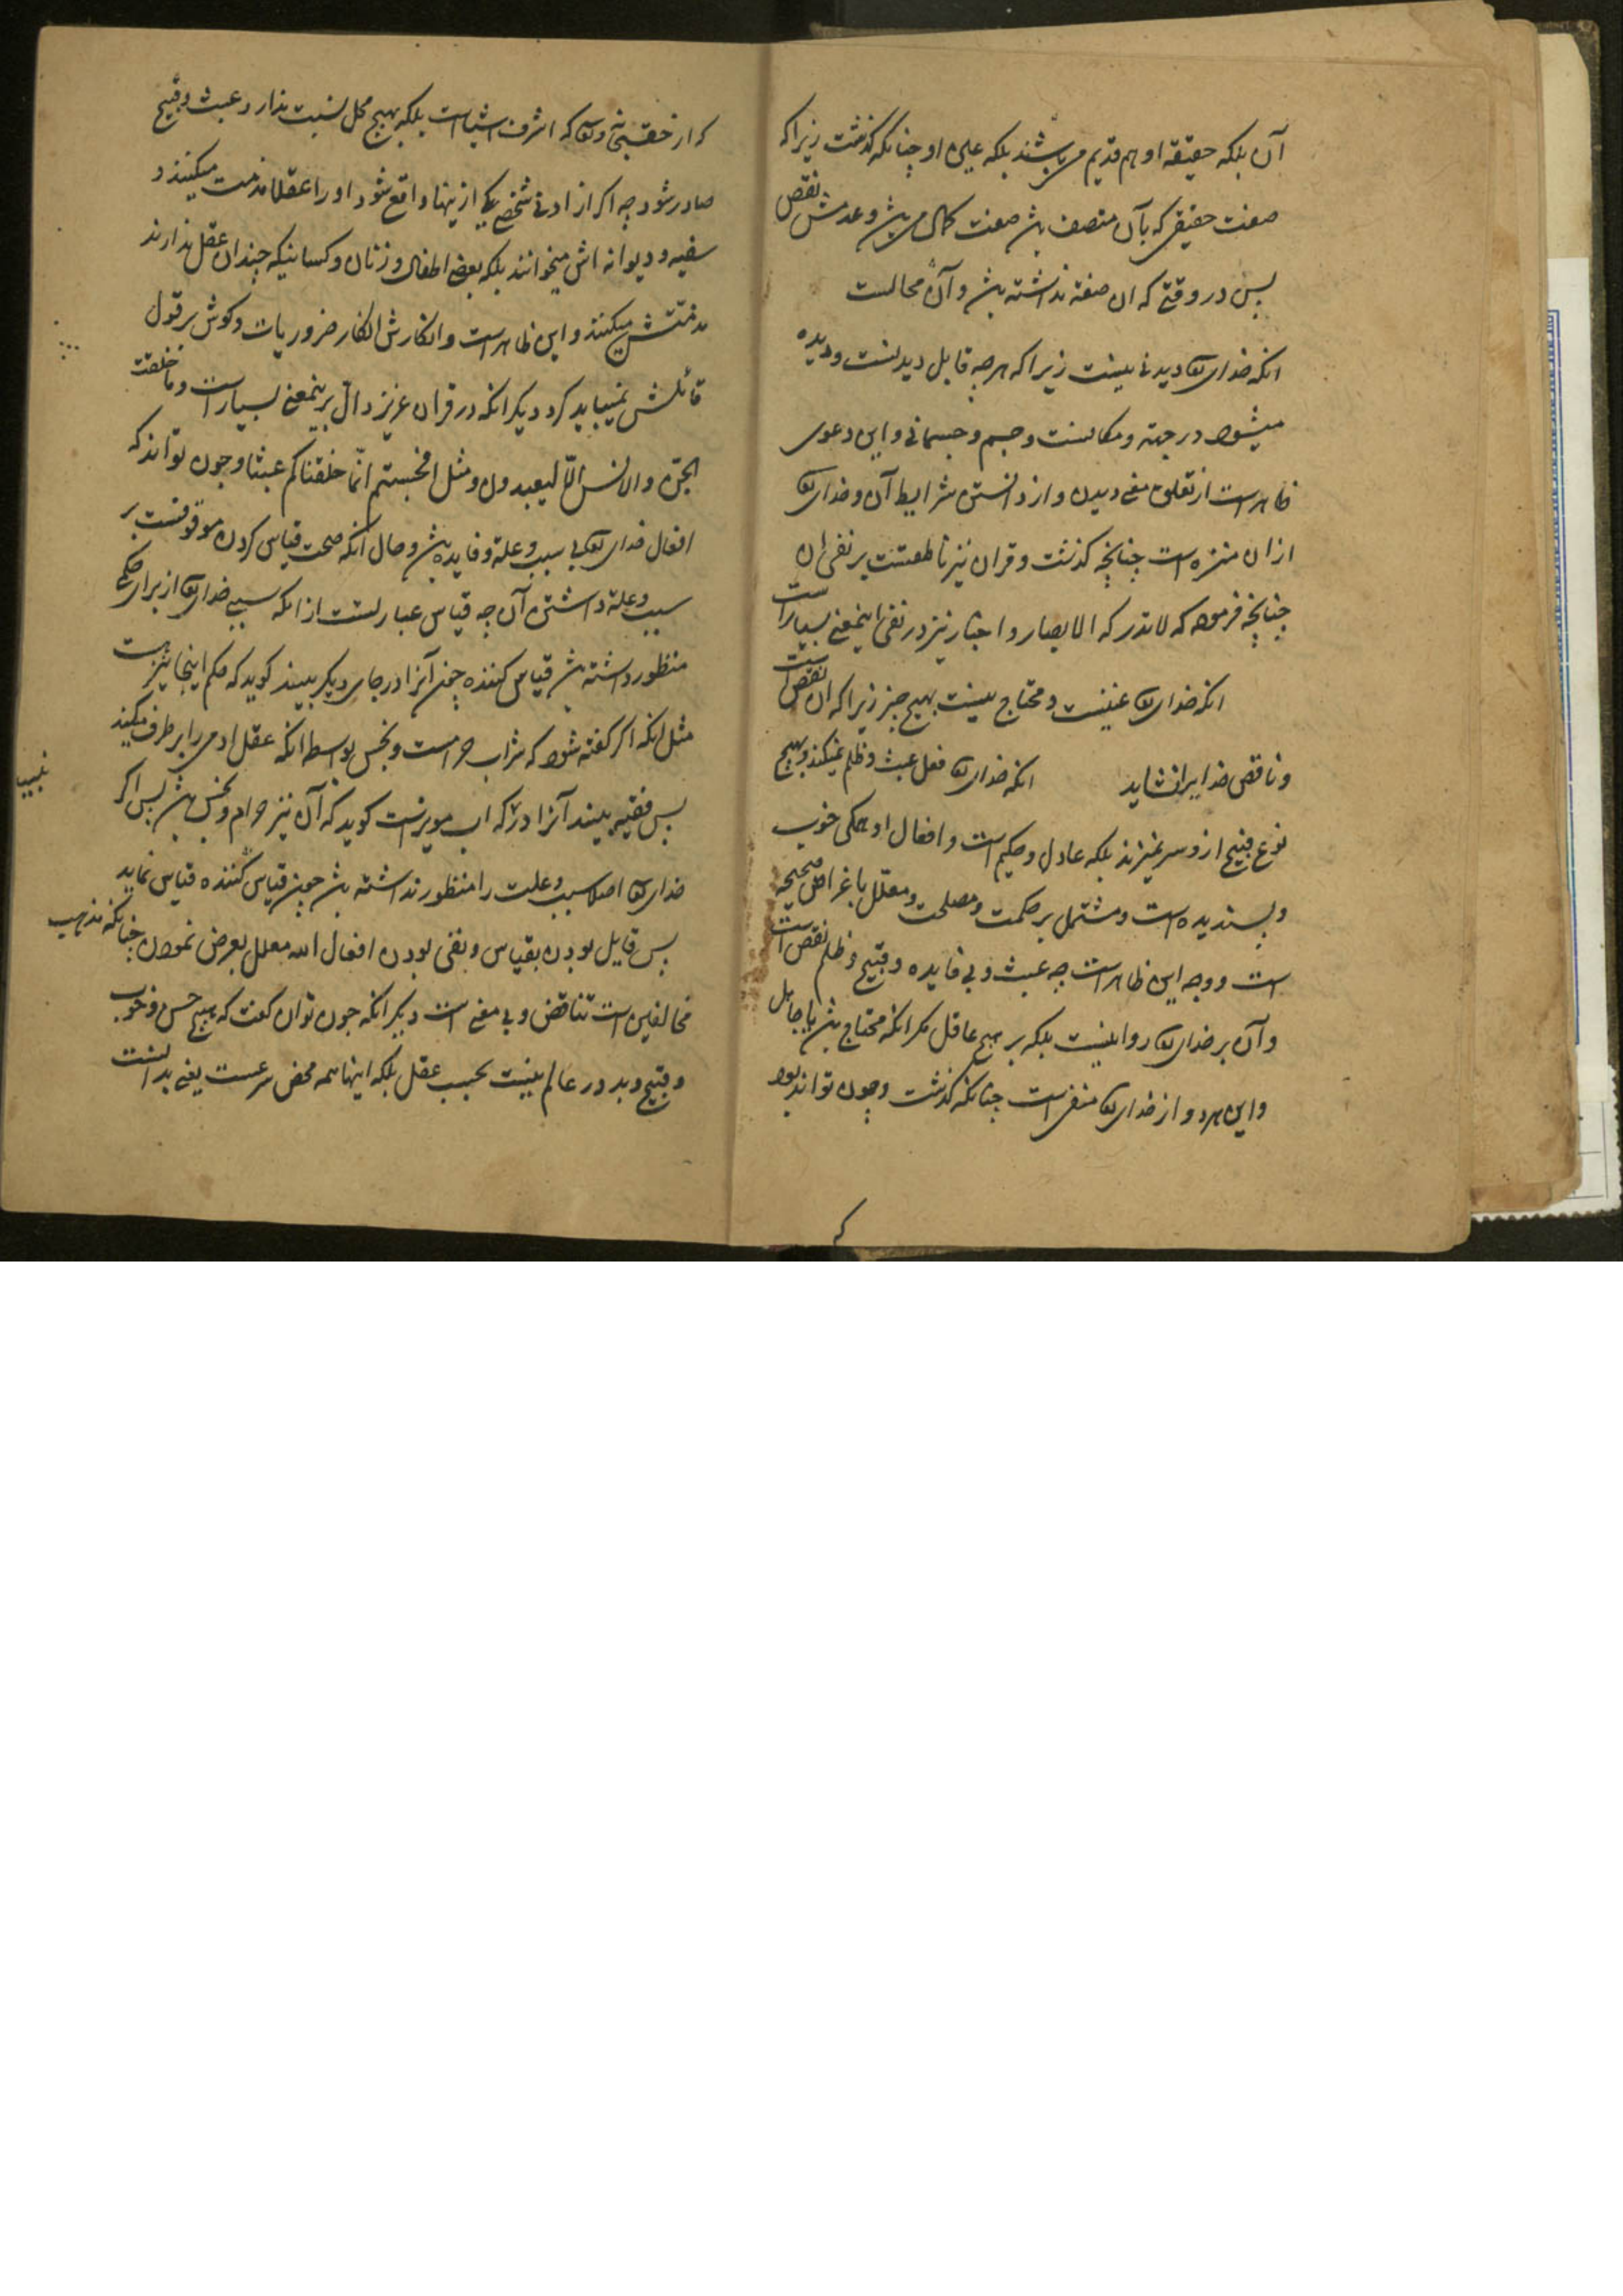 آن بلکه حقیقة او هم قدیم میباشند بلکه عین او چنانکه گذشت زیرا که
صفت حقیقی که بآن متصف باشد صفت کمال میباشد و عدمش نقص
پس در وقتی که ان صفة نداشته باشد و آن محالست
انکه خدای تعالی دیدنی نیست زیرا که هرچه قابل دیدنست و دیده
میشود در جهة و مکانست و جسم و جسمانی و این دعوی
ظاهر است از تعلق معنی دیدن و از دانستن شرایط آن و خدای تعالی
ازان منزه است چنانچه گذشت و قران نیز ناطقست بر نفی ان
چنانچه فرموده که لاتدرکه الابصار و اخبار نیز در نفی اینمعنی بسیار است
انکه خدای تعالی غنیست و محتاج نیست بهیچ چیز زیرا که ان نقص است
و ناقص خدایرا نشاید انکه خدای تعالی فعل عبث و ظلم نمیکند و هیچ
نوع قبیح ازو سر نمیزند بلکه عادل و حکیم است و افعال او همگی خوب
و پسندیده است و مشتمل بر حکمت و مصلحت و معلل باغراض صحیحه
است و وجه این ظاهر است چه عبث و بی فایده و قبیح و ظلم نقص است
و آن بر خدای تعالی روا نیست بلکه بر هیچ عاقل مکر انکه محتاج باشد یا جاهل
و این هردو از خدای تعالی منفی است چنانکه گذشت و چون تواند بود
که
که از حقتعالی که اشرف اشیاست بلکه بهیچ محل نسبت ندارد عبث و قبیح
صادر شود چه اکر از ادنی شخصی یکی ازینها واقع شود او را عقلا مذمت میکنند و
سفیه و دیوانه اش میخوانند بلکه بعضی اطفال و زنان و کسانیکه چندان عقل ندارند
مذمتش میکنند و این ظاهر است و انکارش انکار ضروریات و کوش بر قول
قائلش نمیباید کرد دیکر انکه در قران عزیز دال برینمعنی بسیار است و ما خلقت
الجن و الانس الا لیعبدون و مثل افحسبتم انما خلقناکم عبثا و چون تواند که
افعال خدای تعالی بی سبب و علة و فایده باشد و حال انکه صحت قیاس کردن موقوفست بر
سبب و علة داشتن آن چه قیاس عبارتست از انکه سببی خدای تعالی از برای حکمی
منظور داشته باشد قیاس کننده چون آنرا در جای دیکر بیند کوید که حکم اینجا نیز هست
مثل انکه اکر کفته شود که شراب حرامست و نجس بواسطه انکه عقل ادمی را برطرف میکند
پس فقیه بیند آنرا در که اب مویزست کوید که آن نیز حرام و نجس باشد پس اکر
خدای تعالی اصلا سبب و علت را منظور نداشته باشد چون قیاس کننده قیاس نماید
پس قایل بودن بقیاس و نفی بودن افعال الله معلل بغرض نمودن چنانکه مذهب
مخالفین است تناقض و بی معنی است دیکر انکه چون توان کفت که هیچ حسن و خوب
و قبیح و بد در عالم نیست بحسب عقل بلکه اینها همه محض شرعست یعنی بدانست